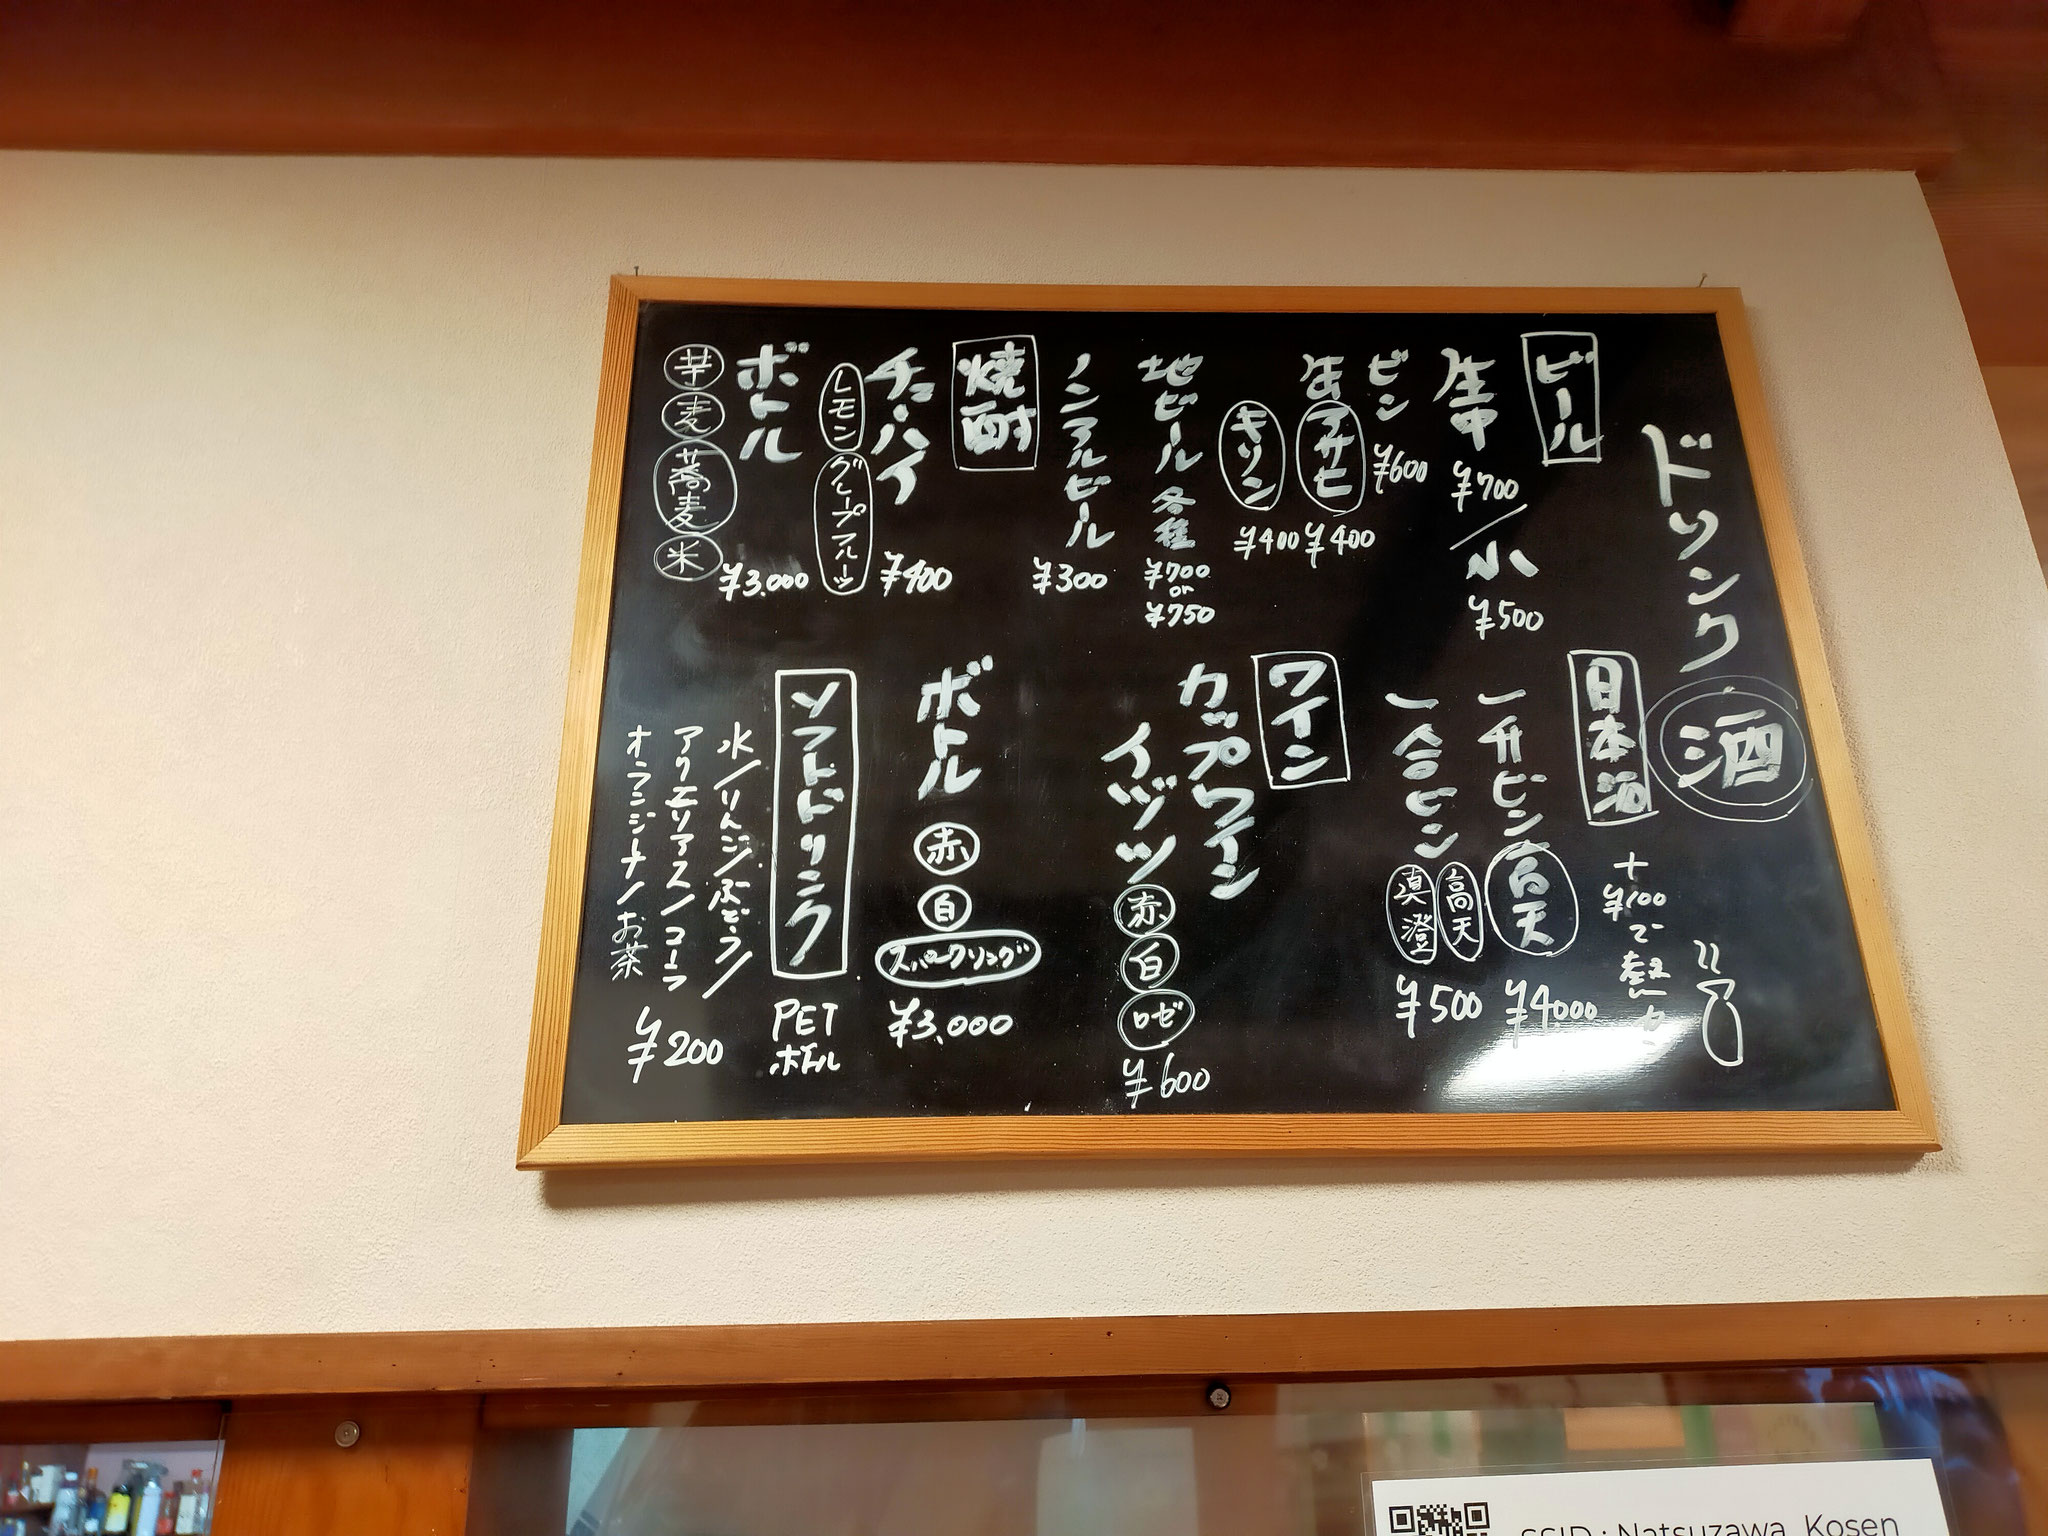 ドリンク 酒
ビール
生中 ¥700 / 小 ¥500
ビン ¥600
缶 アサヒ ¥400
キリン ¥400
地ビール 各種 ¥700 or ¥750
ノンアルビール ¥300
焼酎
チューハイ ¥400
レモン グレープフルーツ
ボトル ¥3,000
芋 麦 蕎麦 米
日本酒
+¥100で熱カン
一升ビン 高天 ¥4,000
一合ビン 高天 真澄 ¥500
ワイン
カップワイン
イヅツ 赤 白 ロゼ ¥600
ボトル 赤 白 スパークリング ¥3,000
ソフトドリンク PETボトル
水/りんご/ぶどう/
アクエリアス/コーラ
オランジーナ/お茶
¥200
SSID : Natsuzawa_Kosen